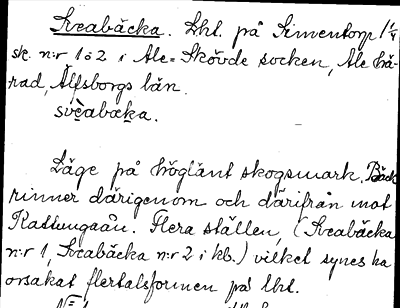 Sveabäcka. Lht. på Simentorp 1 1/4
sk. n:r 1 o 2 i Ale-Skövde socken, Ale hä-
rad, Älfsborgs län.
svèabæka.
Läge på höglänt skogsmark. Bäck
rinner därigenom och därifrån mot
Flera ställen, (Sveabäcka
n:r 1, Sveabäcka n:r 2 i kb.) vilket synes ha
orsakat flertalsformen på lht.